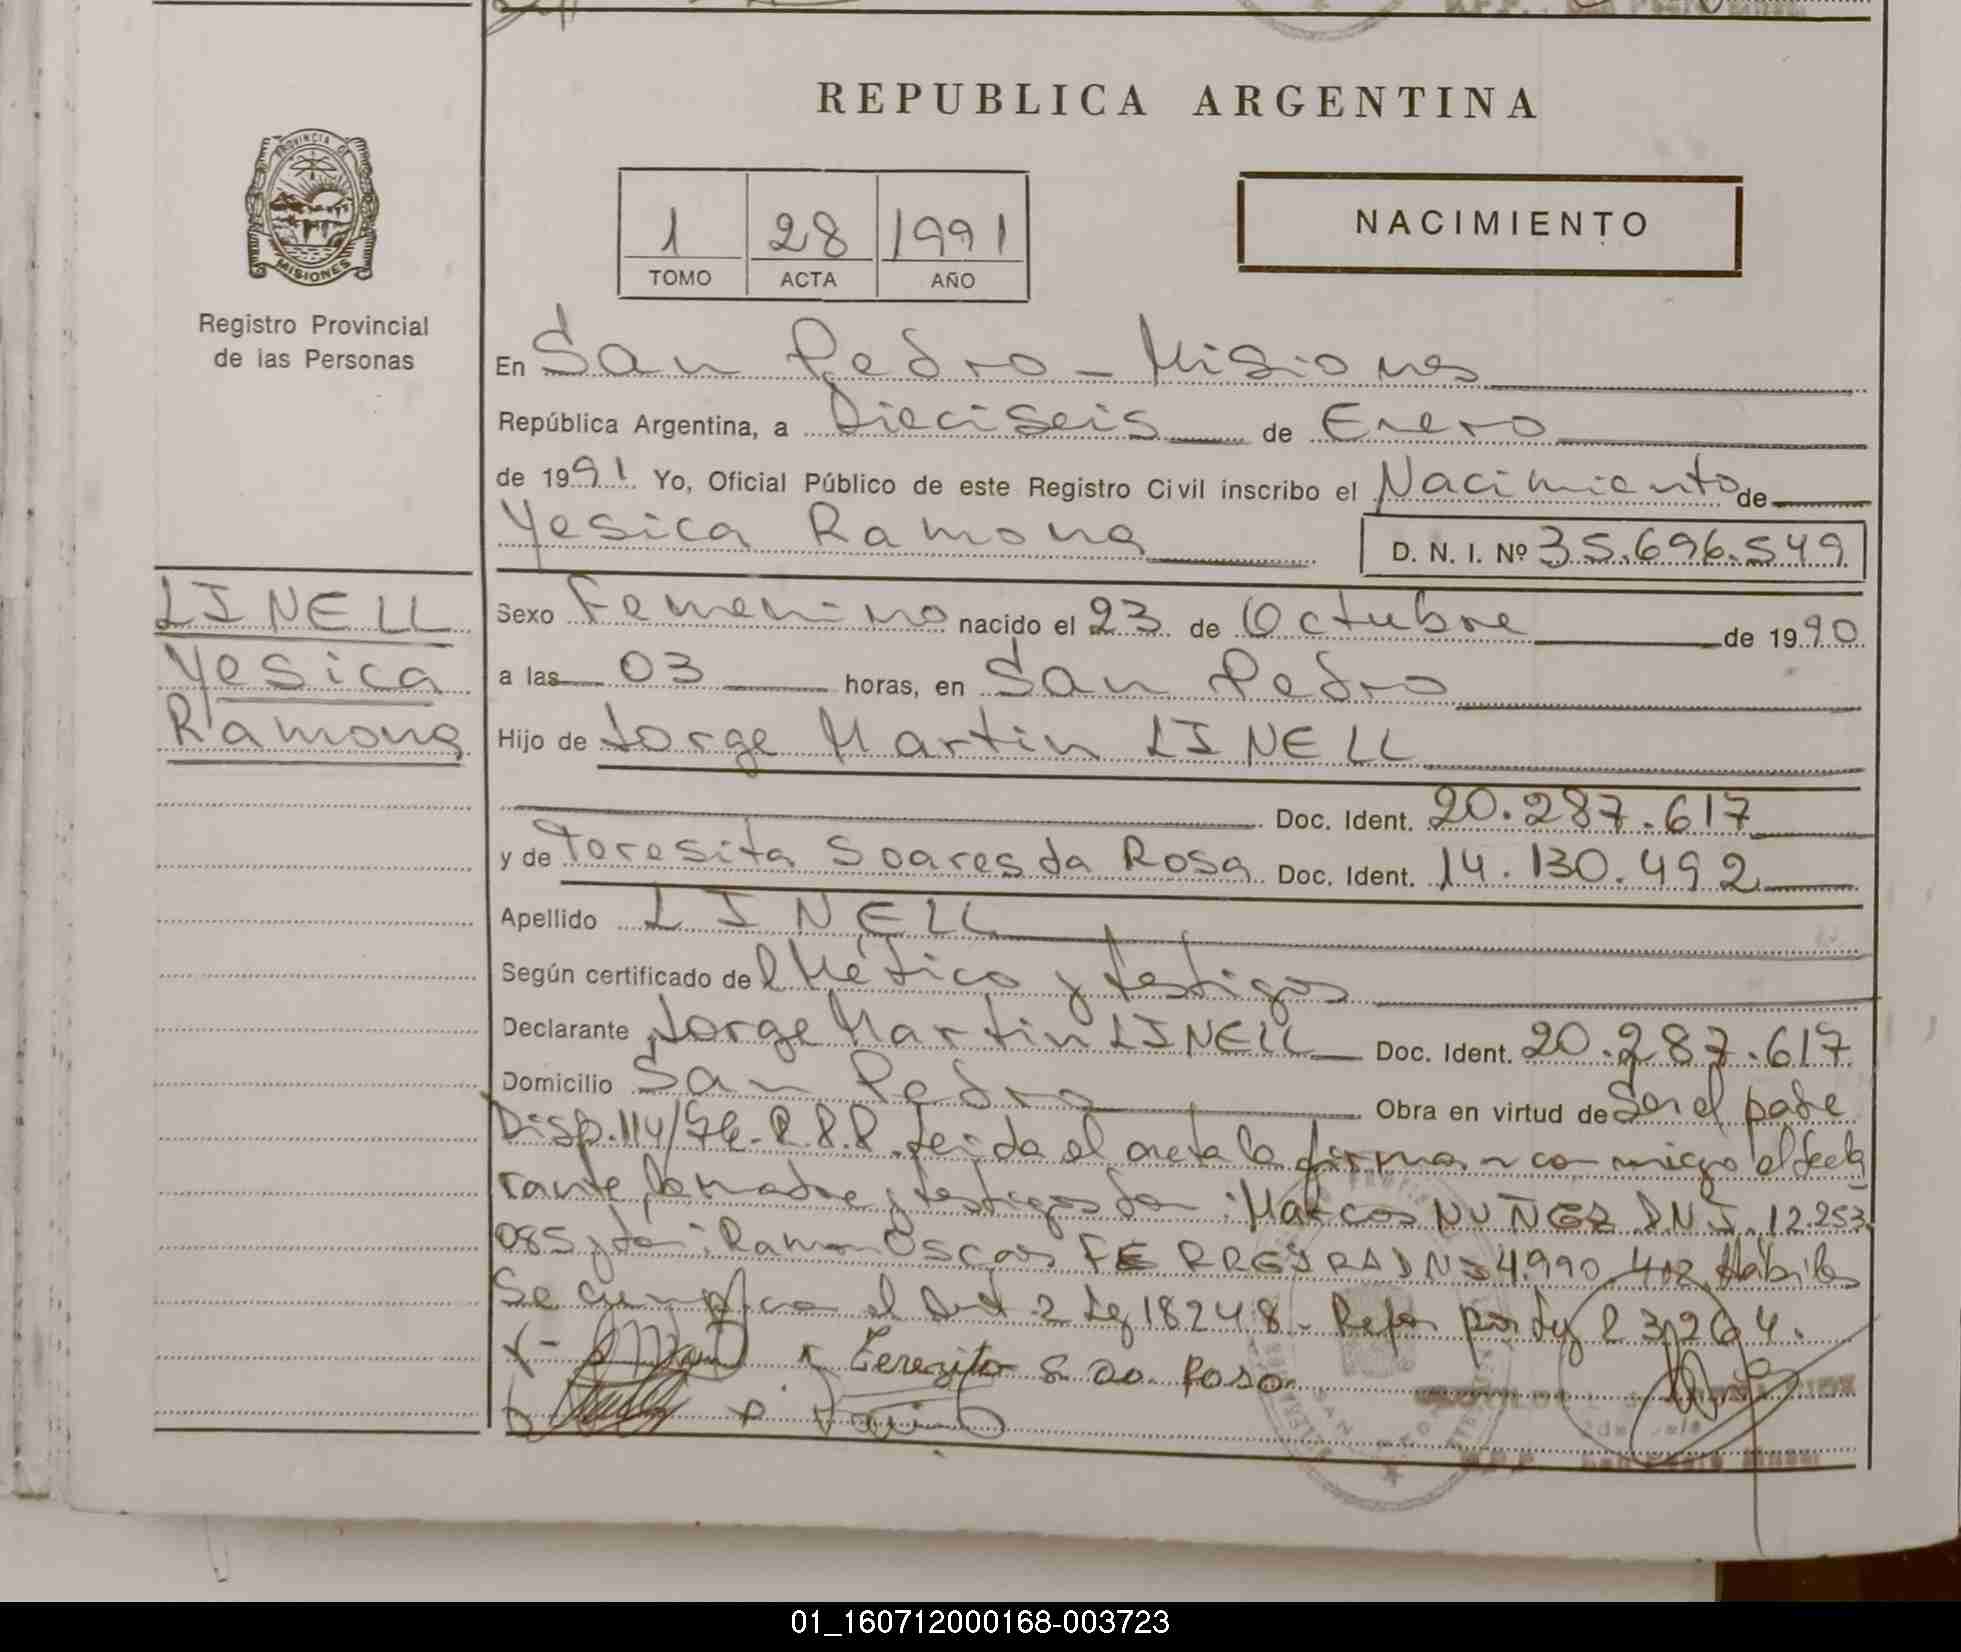 REPUBLICA ARGENTINA
PROVINCIA DE
MISIONES
Registro Provincial
de las Personas
1 28 1991
TOMO ACTA AÑO
NACIMIENTO
En San Pedro - Misiones
República Argentina, a Dieciseis de Enero
de 1991 Yo, Oficial Público de este Registro Civil inscribo el Nacimiento de
Yesica Ramona D. N. I. Nº 35.696.549
LINELL
Yesica
Ramona
Sexo Femenino nacido el 23 de Octubre de 1990
a las 03 horas, en San Pedro
Hijo de Jorge Martin LINELL
Doc. Ident. 20.287.617
y de Teresita Soares da Rosa Doc. Ident. 14.130.492
Apellido LINELL
Según certificado del Médico y testigos
Declarante Jorge Martin LINELL Doc. Ident. 20.287.617
Domicilio San Pedro Obra en virtud de Ser el padre
Disp. 114/ R.P.P. Leida el acta la firman conmigo el decla
rante, la madre y testigos Don: Marcos NUÑEZ D.N.I. 12.253.
085 y don: Ramon Oscar FERREYRA DNI 4.990.412 Hábiles
Se cumplica el Art 2 Ley 18248 - Refor por Ley 23264.
x - x Terezita S da Rosa
01_160712000168-003723